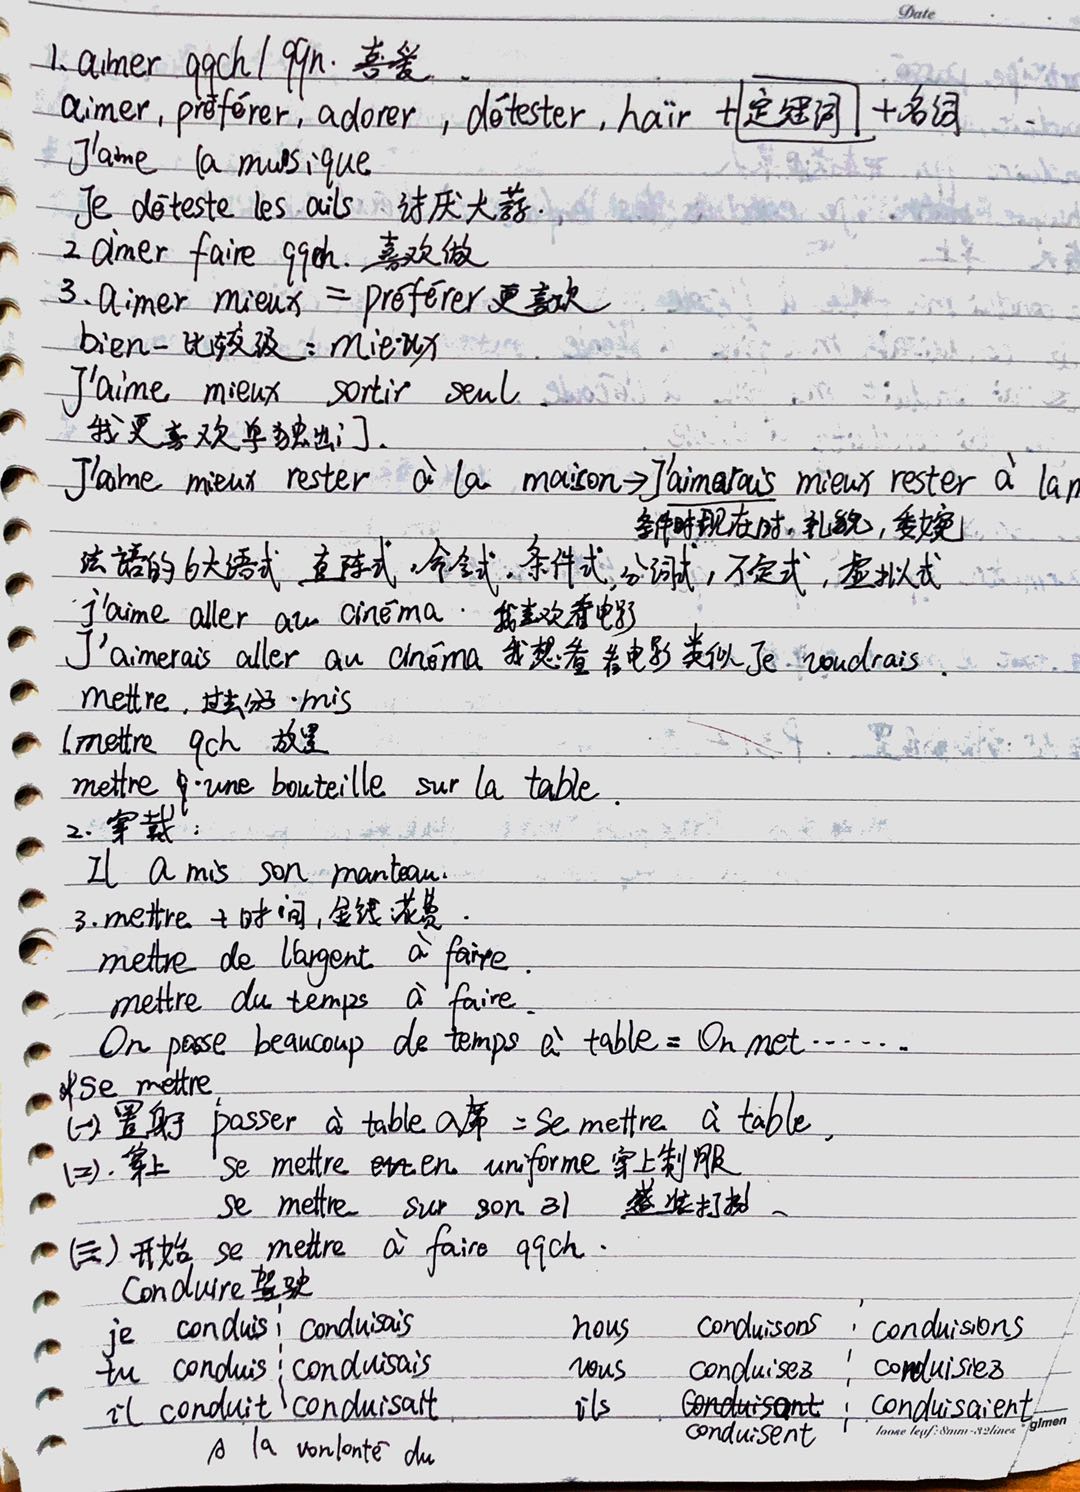 Date
1. aimer qqch / qqn. 喜爱
aimer, préférer, adorer, détester, haïr + 定冠词 + 名词
J'aime la musique
Je déteste les ails 讨厌大蒜.
2 aimer faire qqch. 喜欢做
3. aimer mieux = préférer 更喜欢
bien - 比较级: mieux
J'aime mieux sortir seul.
我更喜欢单独出门.
J'aime mieux rester à la maison → J'aimerais mieux rester à la m
条件时现在时. 礼貌, 委婉
法語的6大语式 直陈式, 命令式, 条件式, 分词式, 不定式, 虚拟式
j'aime aller au cinéma. 我喜欢看电影
J'aimerais aller au cinéma 我想看看电影 类似 Je voudrais.
mettre, 过去分 . mis
1. mettre qch 放置
mettre une bouteille sur la table.
2. 穿戴:
Il a mis son manteau.
3. mettre + 时间, 金钱 花费.
mettre de l'argent à faire.
mettre du temps à faire.
On passe beaucoup de temps à table = On met ......
*se mettre
(一) 置身于 passer à table 入席 = se mettre à table.
(二). 穿上 se mettre en uniforme 穿上制服
se mettre sur son 31 盛装打扮、
(三) 开始 se mettre à faire qqch.
Conduire 驾驶
je conduis conduisais nous conduisons conduisions
tu conduis conduisais vous conduisez conduisiez
il conduit conduisait ils conduisant conduisaient
conduisent
loose leaf: 8mm-32lines glmen
à la vonlonté du